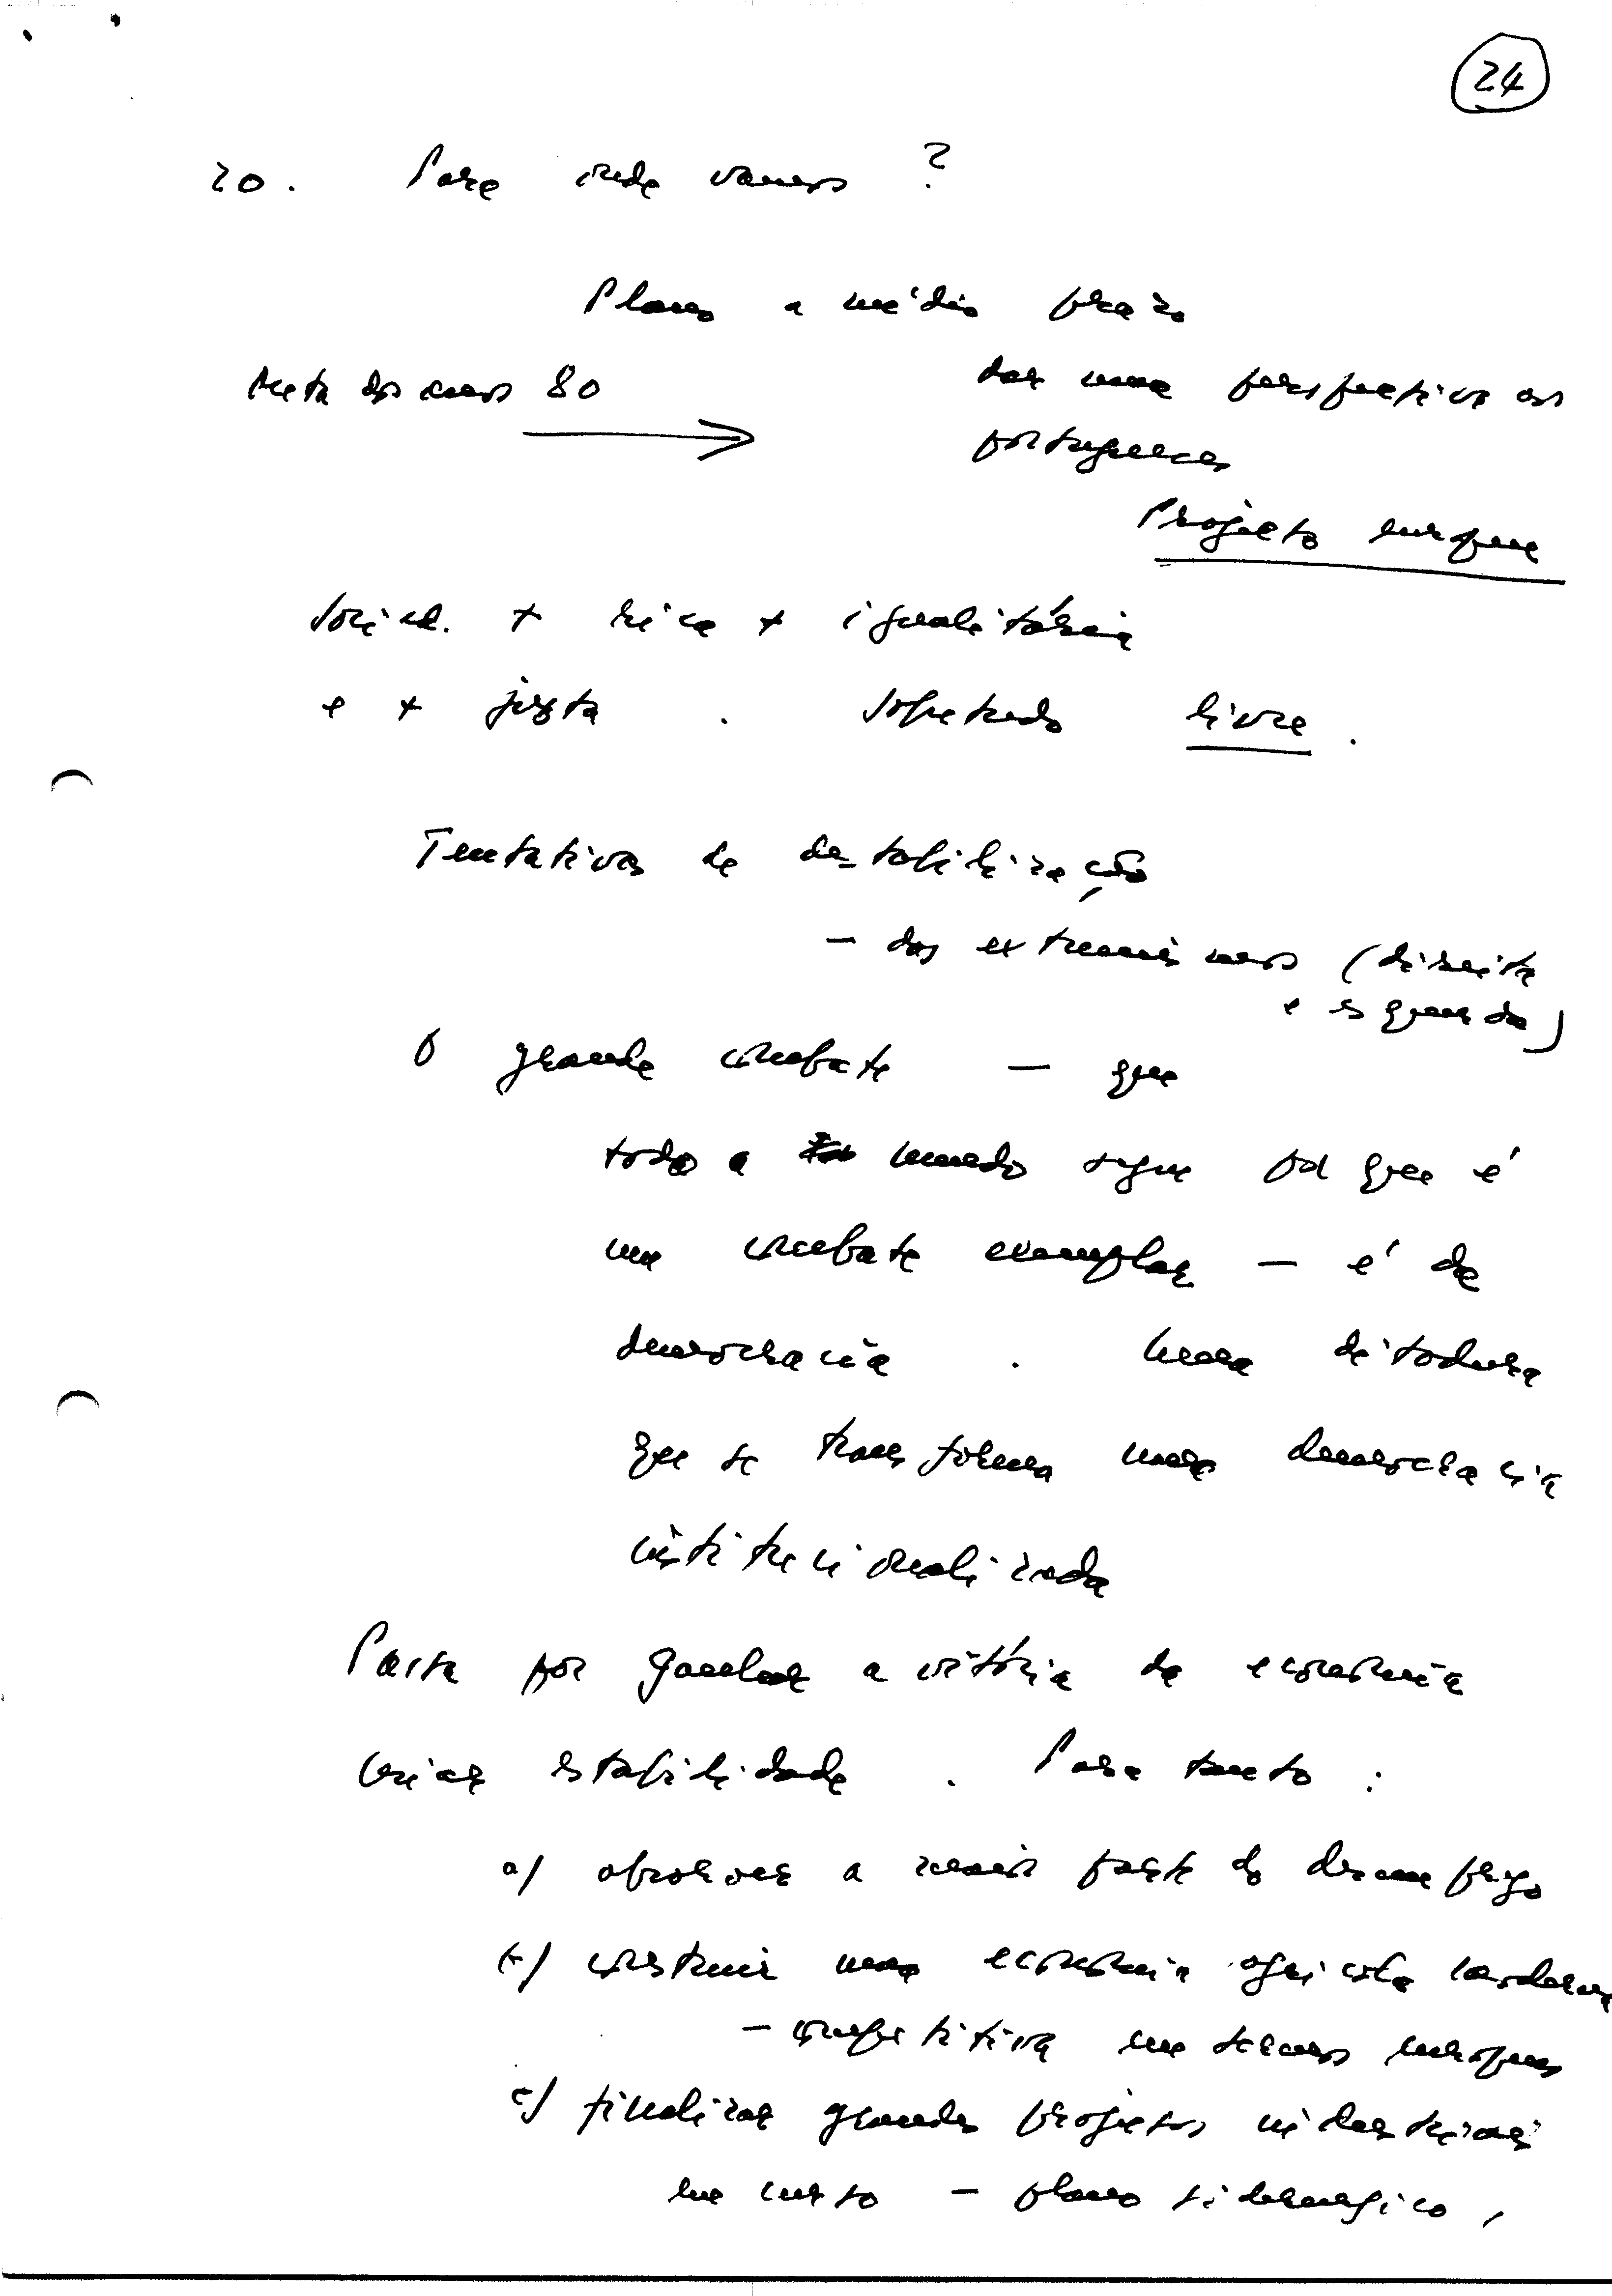 24
20. Para onde vamos ?
Plano a médio prazo
Meta dos anos 80
dar uma perspectiva aos
portugueses
Projecto europeu
socied. + rica + igualitária
e + justa . Sobretudo livre .
Tentativas de destabilização
- dos extremismos (direita
e esquerda)
O grande combate - que
todo o mundo segue por que é
um combate exemplar - é da
democracia . Uma ditadura
que se transforma numa democracia
institucionalizada
Passa por ganhar a vitória da economia
Criar estabilidade . Para tanto :
a/ absorver a maior parte do desemprego
b/ construir uma economia agrícola moderna
- competitiva em termos europeus
c/ finalizar grandes projetos industriais
em curso - plano siderurgico ,